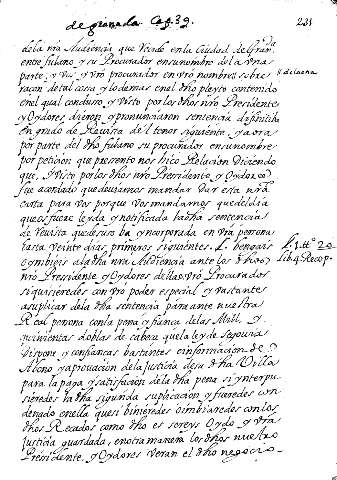 de granada Cap. 39.
231
de la nra Audiencia que reside en la Ciudad de Gran.da
entre fulano y su Procurador en su nombre de la una
parte, y vos y vro procurador en vro nombre sobre
racon de tal cosa y lo demas en el dho pleyto contenido
en el qual concluso y visto por los dhos nro Presidente
y Oydores, dieron y pronunciaron sentencia difinitiba
en grado de Revista del tenor siguiente y aora
por parte del dho fulano su procurador en su nombre
por peticion que presento nos hico Relacion Diciendo
que, y Visto por los dhos nro Presidente y Oydores
fue acordado que deviamos mandar dar esta nra
carta para vos por que vos mandamos que del dia
que os fuere leyda y notificada la dha sentencia
de revista que de suso ba yncorporada en vra persona
hasta veinte dias primeros siguientes. bengais
o ymbieis a la dha nra Audiencia ante los dhos
nro Presidente y Oydores della vro Procurador
si quisieredes con vro poder especial y vastante
a suplicar de la dha sentencia para ante nuestra
Real persona con la pena y fianca de las Mill y
quinientas doblas de cabeca que la ley de Segovia
dispone y con fiancas bastantes e informacion de
Abono y aprovacion de la Justicia desa dha Villa
para la paga y satisfacion de la dha pena si ynterpu-
sieredes la dha segunda suplicacion y fueredes con-
denado en ella que si binieredes o imbiaredes con los
dhos Recados como dho es sereys Oydo y vra
Justicia guardada, en otra manera los dhos nuestro
Presidente. y Oydores veran el dho negocio